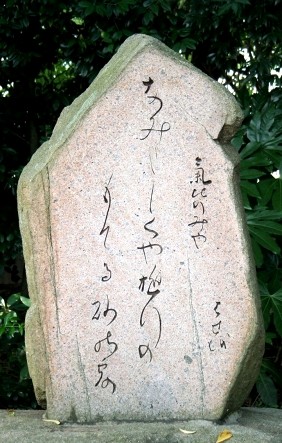 氣比のみや
はせを
なみだしくや遊行の
もてる砂の露